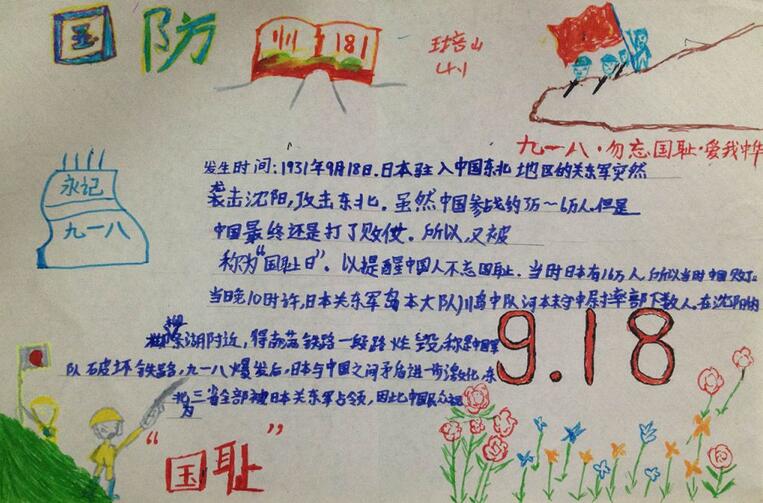 国防
181
珪培山
小
九一八·勿忘国耻·爱我中华
永记
九一八
发生时间:1931年9月18日.日本驻入中国东北地区的关东军突然
袭击沈阳,攻击东北.虽然中国参战约3万~6万人.但是
中国最终还是打了败仗.所以,又被
称为“国耻日”.以提醒中国人不忘国耻.当时日本有16万人,所以当时中国败了.
当晚10时许,日本关东军岛本大队川岛中队河本末守中尉率部下数人.在沈阳的
柳条湖附近,将南满铁路一段路炸毁,称是中国军
队破坏铁路.九一八爆发后,日本与中国之间矛盾进一步激化,东
北三省全部被日本关东军占领,因此中国民众视
为
“国耻”
9.18